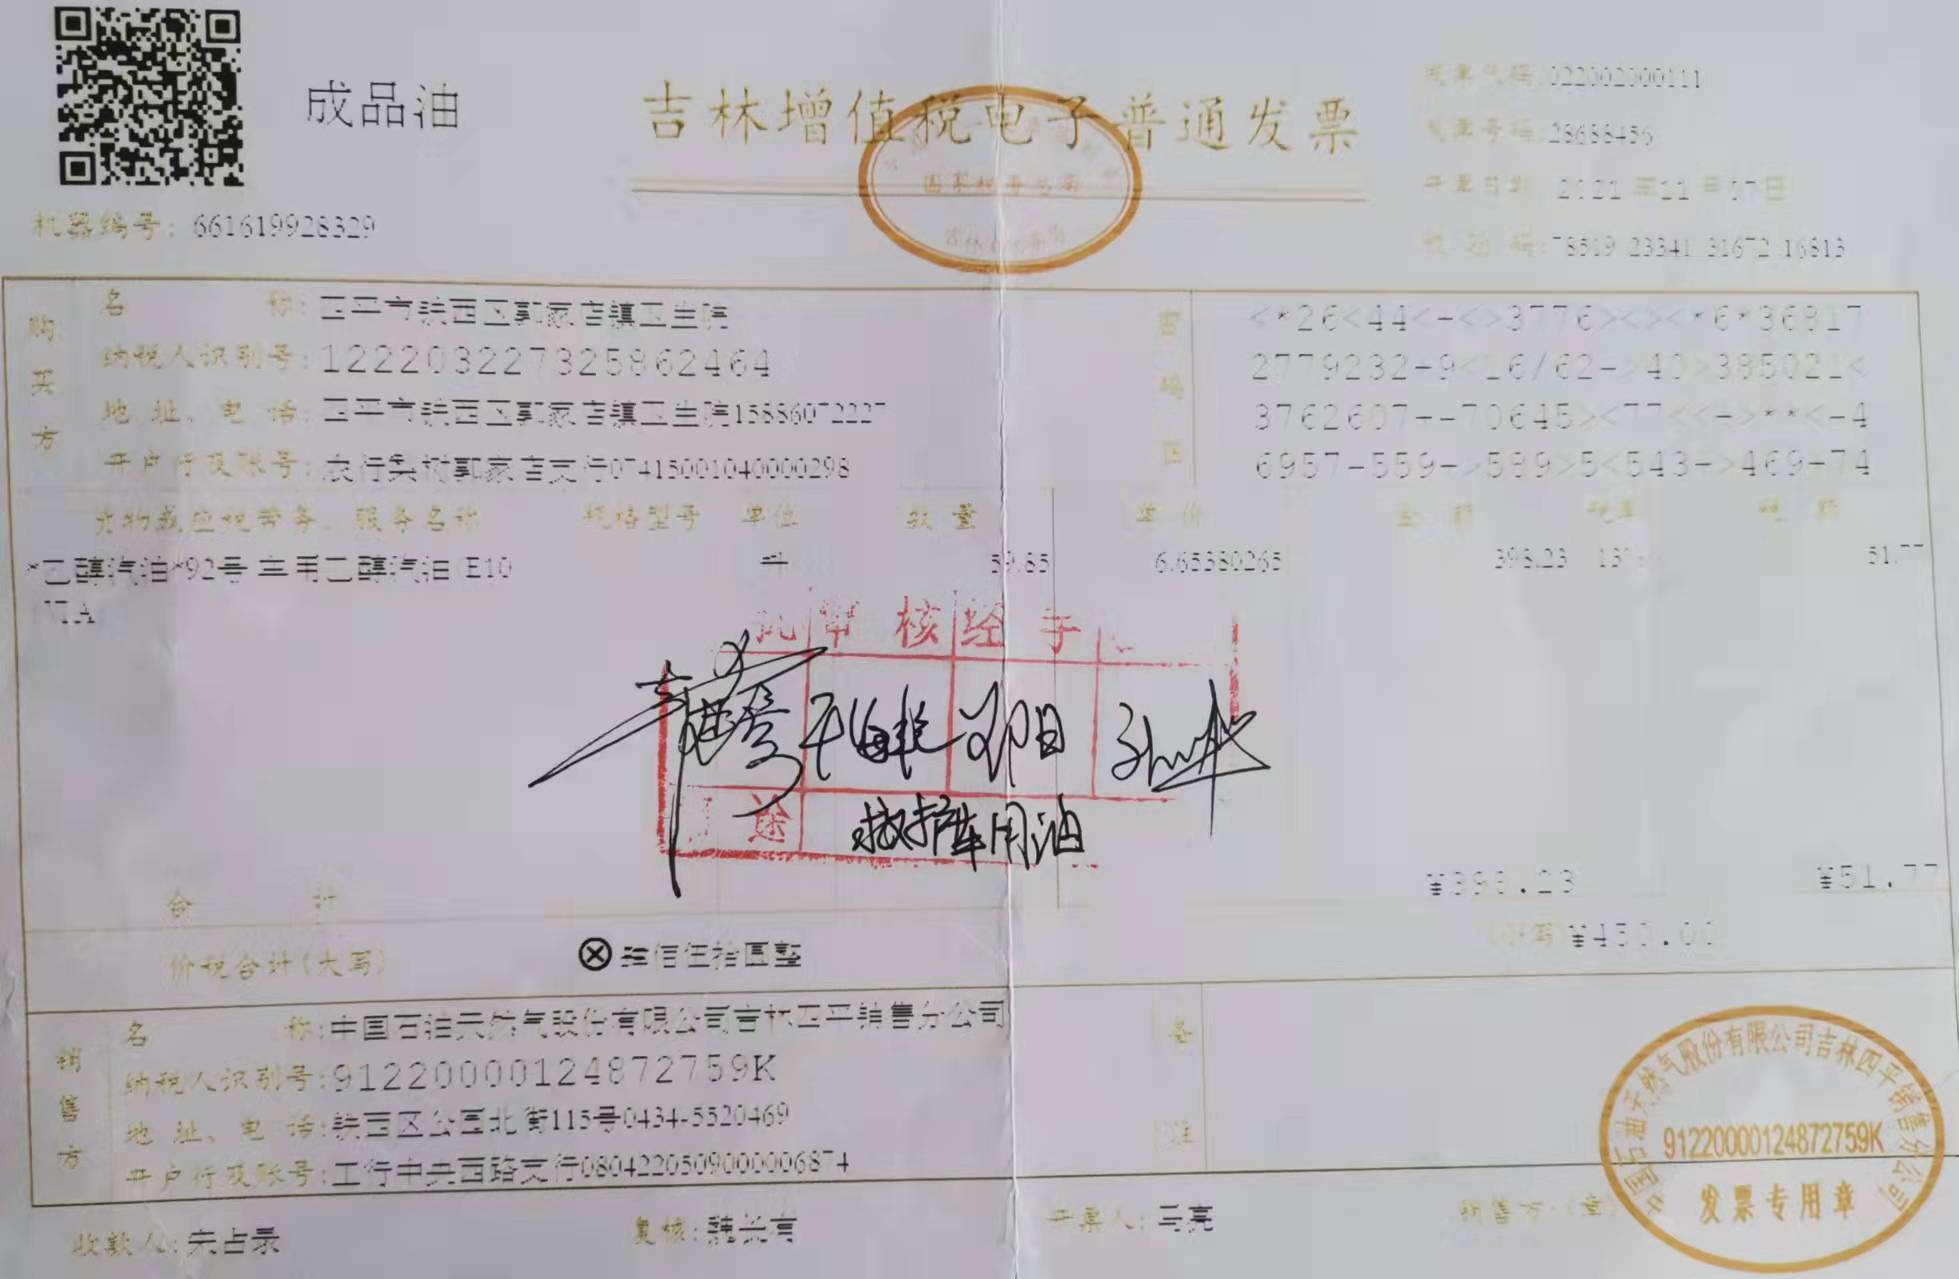 成品油
吉林增值税电子普通发票
发票代码:022002000111
发票号码:28688456
开票日期:2021年11月07日
校验码:78519 23341 31672 16813
机器编号:661619928329
购买方
名称:四平市铁西区郭家店镇卫生院
纳税人识别号:122203227325862464
地址、电话:四平市铁西区郭家店镇卫生院15886072227
开户行及账号:农行梨树郭家店支行07415001040000298
密码区
<*26<44<+<>3776><><*6*36817
2779232+9<16/62->40>385021<
3762607+-70645><77<<+>**<-4
6957-559->589>5<543+>469+74
货物或应税劳务、服务名称 规格型号 单位 数量 单价 金额 税率 税额
*乙醇汽油*92号 车用乙醇汽油(E10 升 59.85 6.65380265 398.23 13% 51.77
VIA
审核 经手
途 救护车用油
合计 ¥398.23 ¥51.77
价税合计(大写) ⊗肆佰伍拾圆整 (小写)¥450.00
销售方
名称:中国石油天然气股份有限公司吉林四平销售分公司
纳税人识别号:91220000124872759K
地址、电话:铁西区公园北街115号0434-5520469
开户行及账号:工行中央西路支行0804220509000006874
备注
中国石油天然气股份有限公司吉林四平销售分公司
91220000124872759K
发票专用章
收款人:宋占录 复核:魏长青 开票人:马亮 销售方:(章)